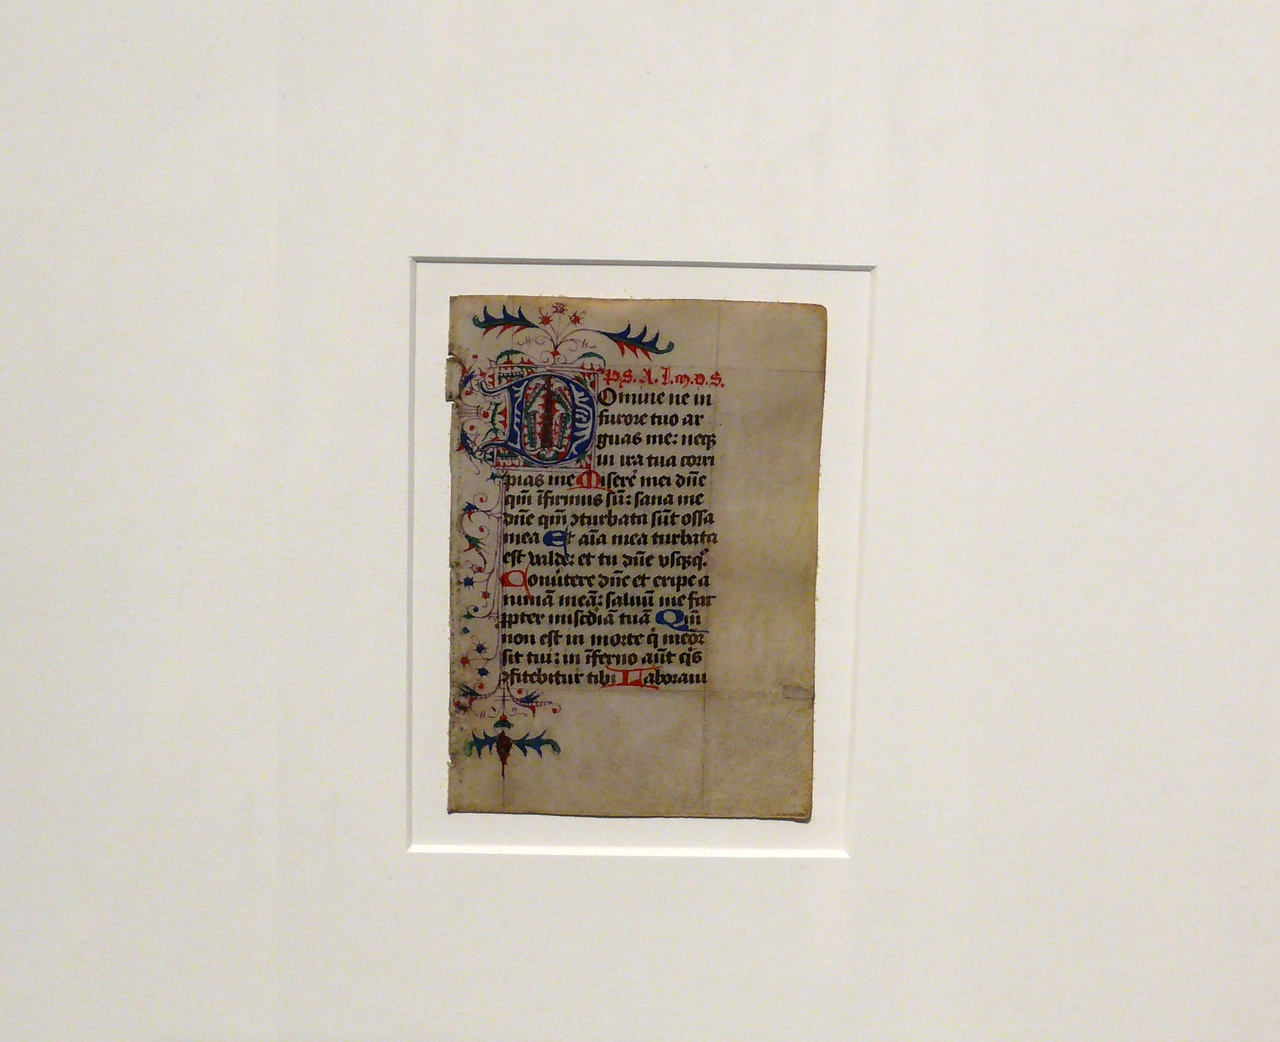 P. S. A. L. m. o. S.
DOmine ne in
furore tuo ar
guas me: neqꝫ
in ira tua corri
pias me Misere mei dñe
qm̄ ĩfirmus sũ: sana me
dñe qm̄ ꝯturbata sũt ossa
mea Et aĩa mea turbata
est valde: et tu dñe vsqꝫqͦ
Conũtere dñe et eripe a
nimã meã: saluũ me fac
ꝓpter mis̃cdiã tuã Qm̄
non est in morte q̇ meõr
sit tui: in ĩferno aũt qͥs
ꝯfitebitur tibi Laboraui